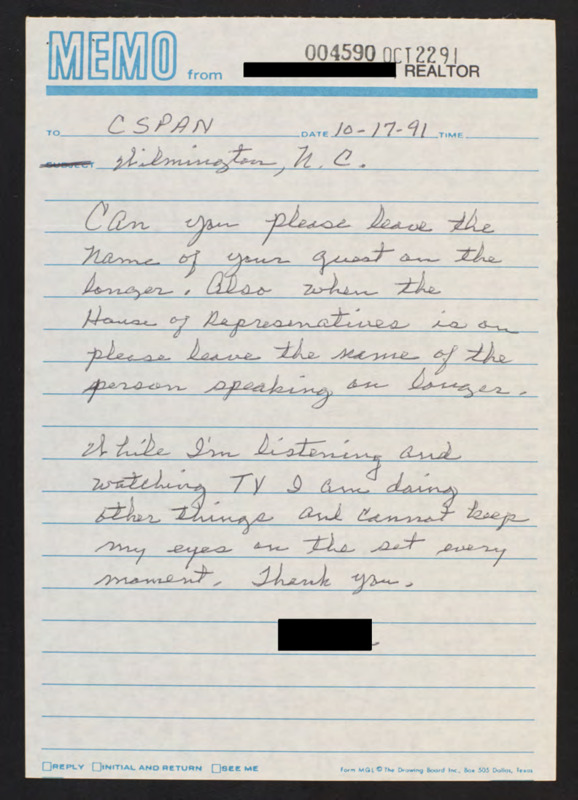 MEMO from
004590 OCT 22 91
REALTOR
TO CSPAN DATE 10-17-91 TIME
SUBJECT Wilmington, N. C.
CAn you please leave the
name of your guest on the
longer. Also when the
House of Represenatives is on
please leave the name of the
person speaking on longer.
While I'm listening and
watching TV I am doing
other things and cannot keep
my eyes on the set every
moment. Thank you.
REPLY INITIAL AND RETURN SEE ME
Form MQL © The Drawing Board Inc., Box 505 Dallas, Texas